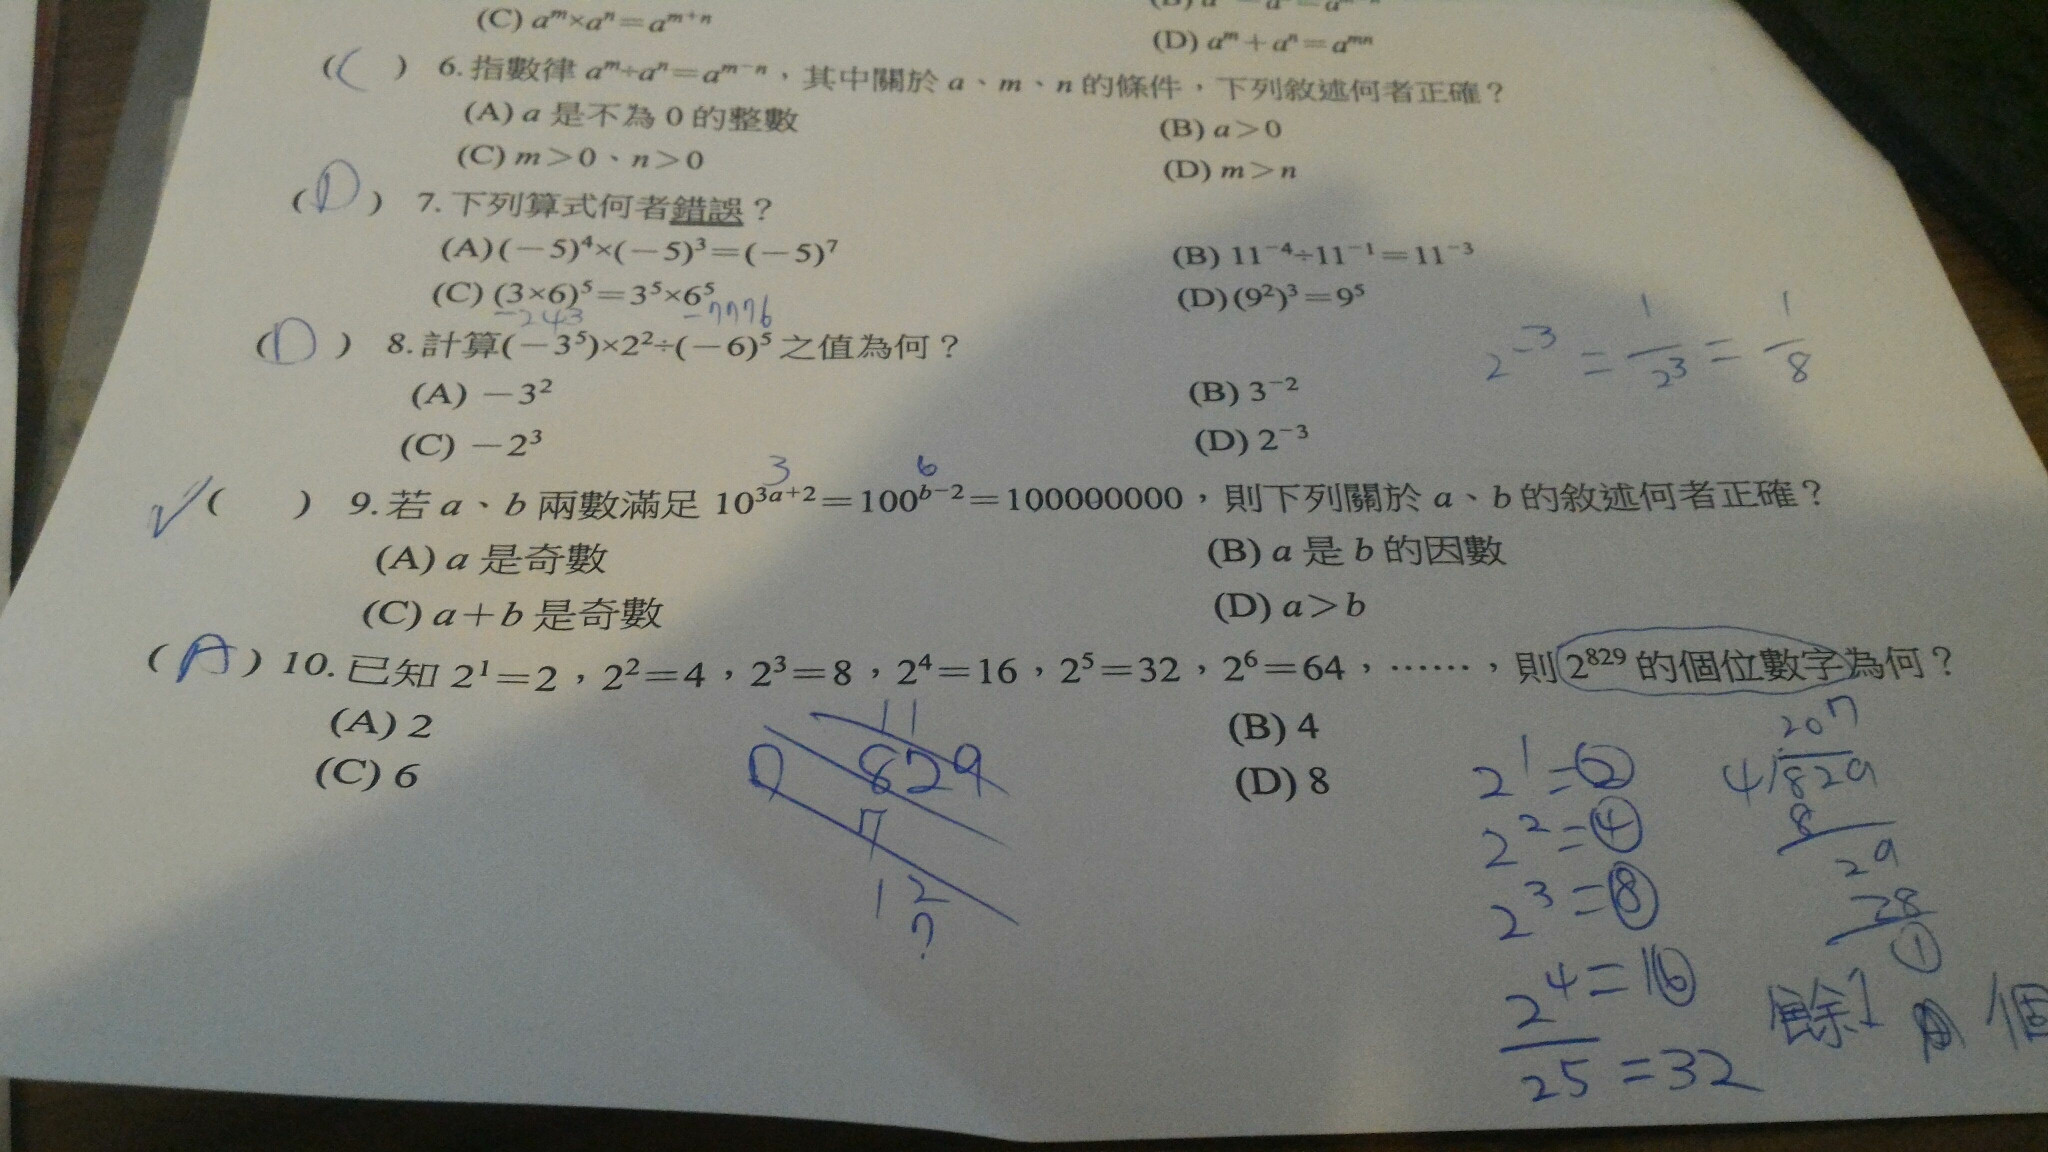 (C) aᵐ×aⁿ=aᵐ⁺ⁿ
(D) aᵐ+aⁿ=aᵐⁿ
(C) 6. 指數律 aᵐ÷aⁿ=aᵐ⁻ⁿ，其中關於 a、m、n 的條件，下列敘述何者正確？
(A) a 是不為 0 的整數 (B) a>0
(C) m>0、n>0 (D) m>n
(D) 7. 下列算式何者錯誤？
(A) (-5)⁴×(-5)³=(-5)⁷ (B) 11⁻⁴÷11⁻¹=11⁻³
(C) (3×6)⁵=3⁵×6⁵ (D) (9²)³=9⁵
-243 -7776
(D) 8. 計算(-3⁵)×2²÷(-6)⁵ 之值為何？
2⁻³ = 1/2³ = 1/8
(A) -3² (B) 3⁻²
(C) -2³ (D) 2⁻³
3 6
✓( ) 9. 若 a、b 兩數滿足 10³ᵃ⁺²=100ᵇ⁻²=100000000，則下列關於 a、b 的敘述何者正確？
(A) a 是奇數 (B) a 是 b 的因數
(C) a+b 是奇數 (D) a>b
(A) 10. 已知 2¹=2，2²=4，2³=8，2⁴=16，2⁵=32，2⁶=64，……，則 2⁸²⁹ 的個位數字為何？
(A) 2 (B) 4
(C) 6 (D) 8
11
829
7
12
7
2¹=2
2²=4
2³=8
2⁴=16
25=32
207
4 829
8
29
28
1
餘1 個